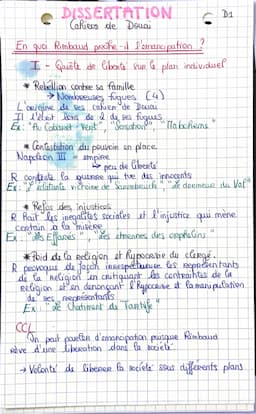 DISSERTATION
D1
Cahiers de Douai
En quoi Rimbaud prône-t-il l'émancipation ?
I - Quête de liberté sur le plan individuel
* Rébellion contre sa famille
→ Nombreuses fugues (4)
L'origine de ses cahiers de Douai
Il l'écrit lors de 2 de ses fugues
Ex : "Au Cabaret-Vert", "Sensation", "Ma bohème"
* Contestation du pouvoir en place
Napoléon III = empire
↳ peu de liberté
R conteste la guerre qui tue des innocents
Ex : "L'éclatante victoire de Sarrebruck", "Le dormeur du Val"
* Refus des injustices
R hait les inégalités sociales et l'injustice qui mène
certain à la misère
Ex : "Les Effarés", "Les étrennes des orphelins"
* Poid de la religion et hypocrisie du clergé.
R provoque de façon irrespectueuse les représentants
de la religion en critiquant les contraintes de la
religion et en dénonçant l'hypocrisie et la manipulation
de ses représentants
Ex : "Le Châtiment de Tartufe"
CCL
On peut parler d'émancipation puisque Rimbaud
rêve d'une libération dans la société
→ Volonté de libérer la société sous différents plans